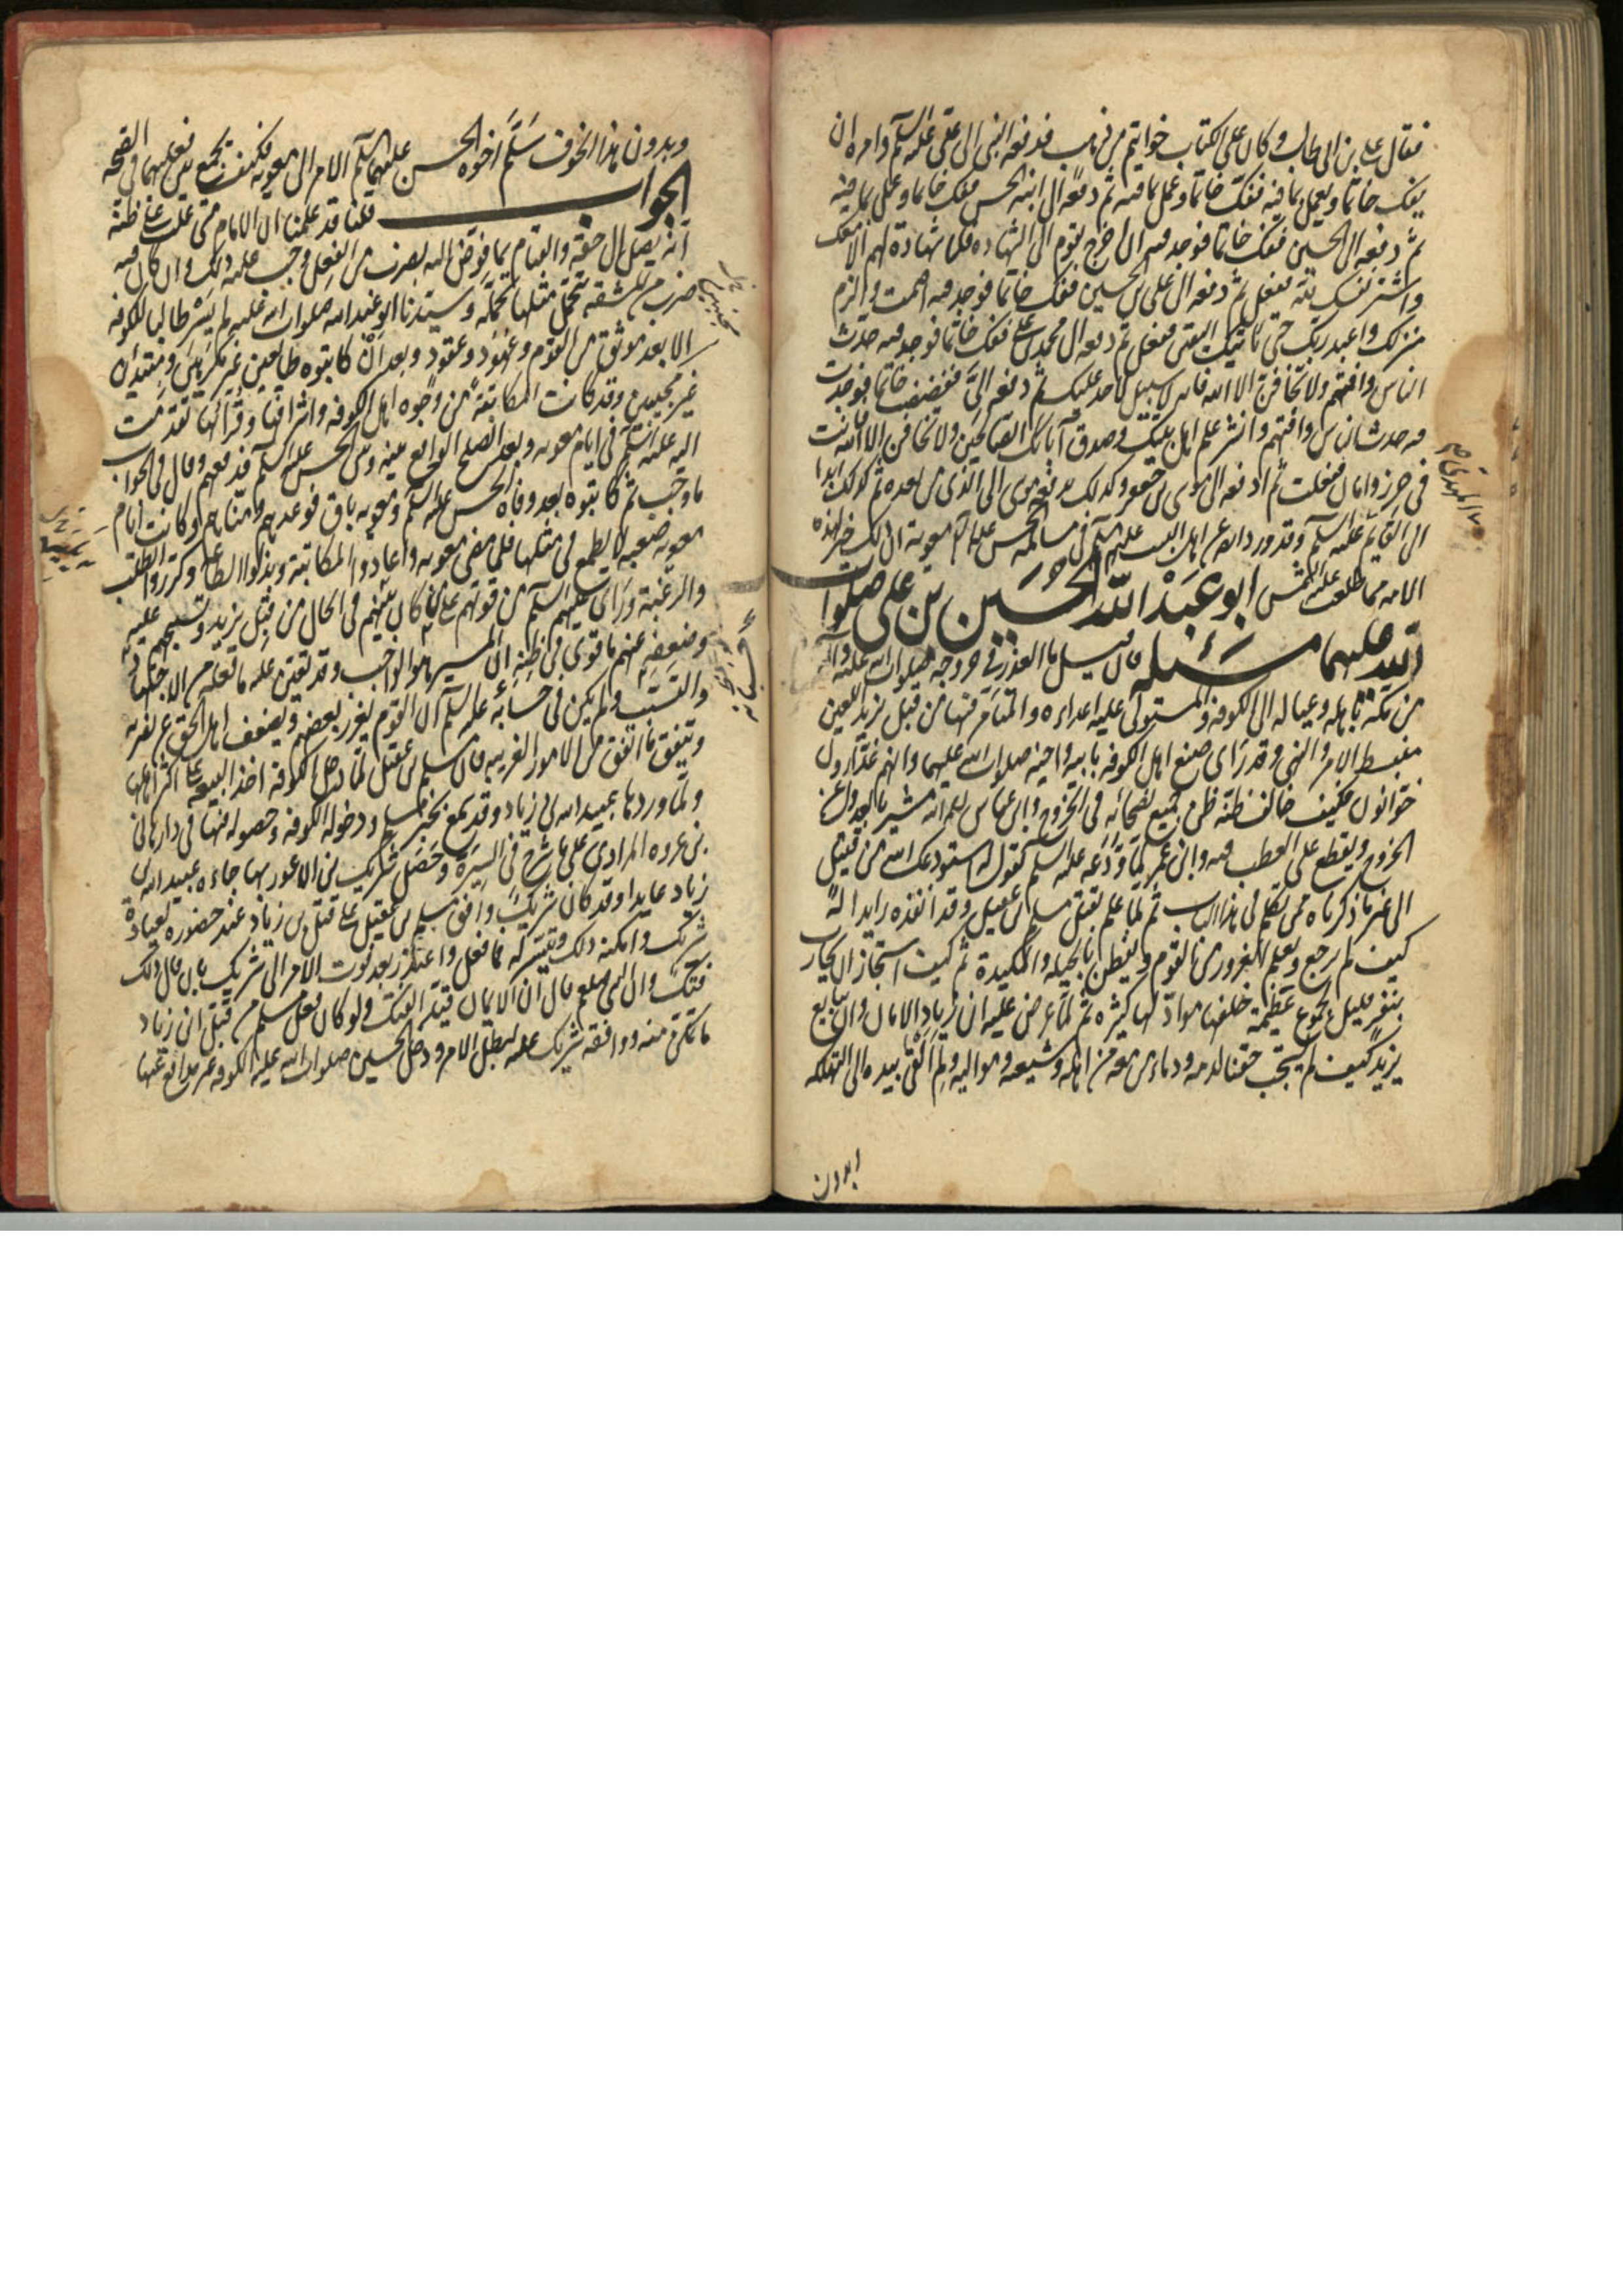 فقال علي بن ابي طالب وكان على الكتاب خواتيم من ذهب فدفعه النبي الى علي عليه السلم وامره ان
يفك خاتما ويعمل بما فيه ففك خاتما وعمل بما فيه ثم دفعه الى ابنه الحسن ففك خاتما وعمل بما فيه
ثم دفعه الى الحسين ففك خاتما فوجد فيه ان اخرج بقوم الى الشهاده فلا شهادة لهم الا معك
واشتر نفسك لله ففعل ثم دفعه الى علي بن الحسين ففك خاتما فوجد فيه اصمت والزم
منزلك واعبد ربك حتى ياتيك اليقين ففعل ثم دفعه الى محمد بن علي ففك خاتما فوجد فيه حدث
الناس وافتهم ولا تخافن الا الله فانه لا سبيل لاحد عليك ثم دفعه الي ففضضت خاتما فوجدت
فيه حدث الناس وافتهم وانشر علم اهل بيتك وصدق آبائك الصالحين ولا تخافن الا الله وانت
في حرز وامان ففعلت ثم ادفعه الى موسى بن جعفر وكذلك يدفعه موسى الى الذي من بعده ثم كذلك ابدا
الى القائم عليه السلم وقد ورد ايضا عن اهل البيت عليهم السلم في مسالمه الحسن عليه السلم معوية ان ذلك خير لهذه
الامه مما طلعت عليه الشمس ابو عبد الله الحسين بن علي صلوات
الله عليهما مسئله قال فيسل ما العذر في خروجه صلوات الله عليه وآله
من مكة باهله وعياله الى الكوفه والمستولى عليها اعداءه والمتامر فيها من قبل يزيد اللعين
منبسط الامر والنهي وقد راى صنع اهل الكوفه بابيه واخيه صلوات الله عليهما وانهم غدارون
خوانون فكيف خالف ظنه ظن جميع نصحائه في الخروج وابن عباس رحمه الله يشير بالعدول عن
الخروج ويقطع على العطب فيه وابن عمر لما ودعه عليه السلم يقول له استودعك الله من قتيل
الى غير ما ذكرناه ممن تكلم في هذا الباب ثم لما علم بقتل مسلم بن عقيل وقد انفذه رايدا له
كيف لم يرجع ويعلم الغرور من القوم ويفطن بالحيله والمكيدة ثم كيف استجاز ان يحارب
بنفر قليل لجموع عظيمة خلفها مواد لها كثيره ثم لما عرض عليه ابن زياد الامان وان يبايع
يزيد كيف لم يستجب حقنا لدمه ودماء من معه من اهله وشيعته ومواليه ولم القى بيده الى التهلكه
وبدون هذا الخوف سلم اخوه الحسن عليهما السلم الامر الى معويه فكيف يجمع بين فعليهما في الصحه
الجواب قلنا قد علمنا ان الامام متى غلب على ظنه
انه يصل الى حقه والقيام بما فوض اليه بضرب من الفعل وجب عليه ذلك وان كان فيه
ضرب من المشقه يتحمل مثلها تحملا وسيدنا ابو عبد الله صلوات الله عليه لم يسر طالبا للكوفه
الا بعد توثق من القوم وعهود وعقود وبعد ان كاتبوه طائعين غير مكرهين ومبتدئين
غير مجيبين وقد كانت المكاتبة من وجوه اهل الكوفه واشرافها وقرائها تقدمت
اليه عليه السلم في ايام معويه وبعد الصلح الواقع بينه وبين الحسن عليه السلم فدفعهم وقال في الجواب
ما وجب ثم كاتبوه بعد وفاة الحسن عليه السلم ومعويه باق فوعدهم ومناهم وكانت ايام
معويه صعبه لا يطمع في مثلها فلما مضى معويه واعادوا المكاتبه وبذلوا الطاعه وكرروا الطلب
والرغبة وراى عليه السلم من قوتهم على من كان يليهم في الحال من قبل يزيد وتسلحهم عليه
وضعفه عنهم ما قوى في ظنه ان المسير هو الواجب وقد تعين عليه ما فعله من الاجتهاد
والتسبب ولم يكن في حسابه عليه السلم ان القوم يغدر بعضهم ويضعف اهل الحق عن نصرته
ويتفق ما اتفق من الامور الغريبه فان مسلم بن عقيل لما دخل الكوفة اخذ البيعة على اكثر اهلها
ولما وردها عبيد الله بن زياد وقد سمع بخبر مسلم ودخوله الكوفه وحصوله فيها في دار هاني
بن عروه المرادي على ما شرح في السيرة وحصل شريك بن الاعور بها جاءه عبيد الله بن
زياد عايدا وقد كان شريك وافق مسلم بن عقيل على قتل بن زياد عند حضوره لعيادة
شريك وامكنه ذلك وتيسر له فما فعل واعتذر بعد فوت الامر الى شريك بان قال ذلك
فتك وان النبي صلعم قال ان الايمان قيد الفتك ولو كان فعل مسلم من قتل ابن زياد
ما تمكن منه ووافقه شريك عليه لبطل الامر ودخل الحسين صلوات الله عليه الكوفه غير مدافع عنها